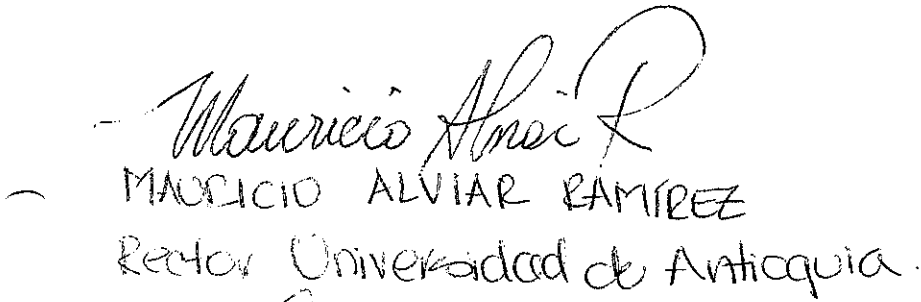 Mauricio Alviar R
MAURICIO ALVIAR RAMÍREZ
Rector Universidad de Antioquia.